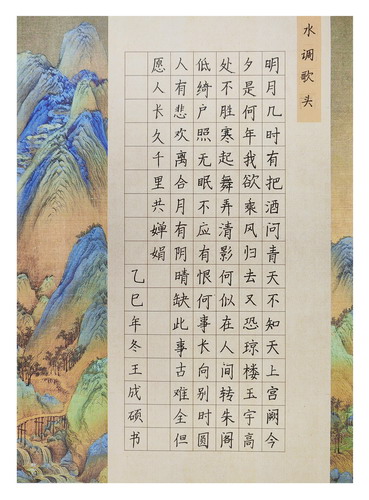 水调歌头
明月几时有把酒问青天不知天上宫阙今
夕是何年我欲乘风归去又恐琼楼玉宇高
处不胜寒起舞弄清影何似在人间转朱阁
低绮户照无眠不应有恨何事长向别时圆
人有悲欢离合月有阴晴缺此事古难全但
愿人长久千里共婵娟
乙巳年冬王成硕书